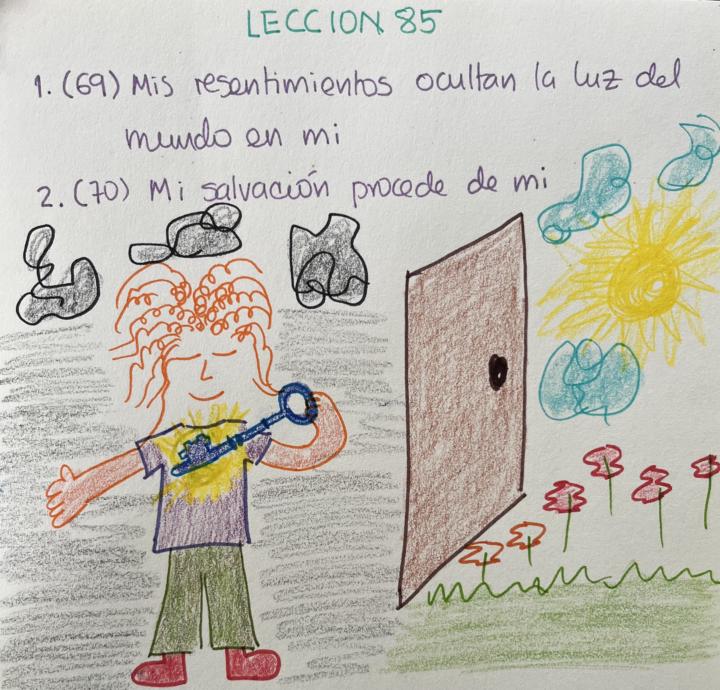 LECCION 85
1. (69) Mis resentimientos ocultan la luz del
mundo en mi
2. (70) Mi salvación procede de mi